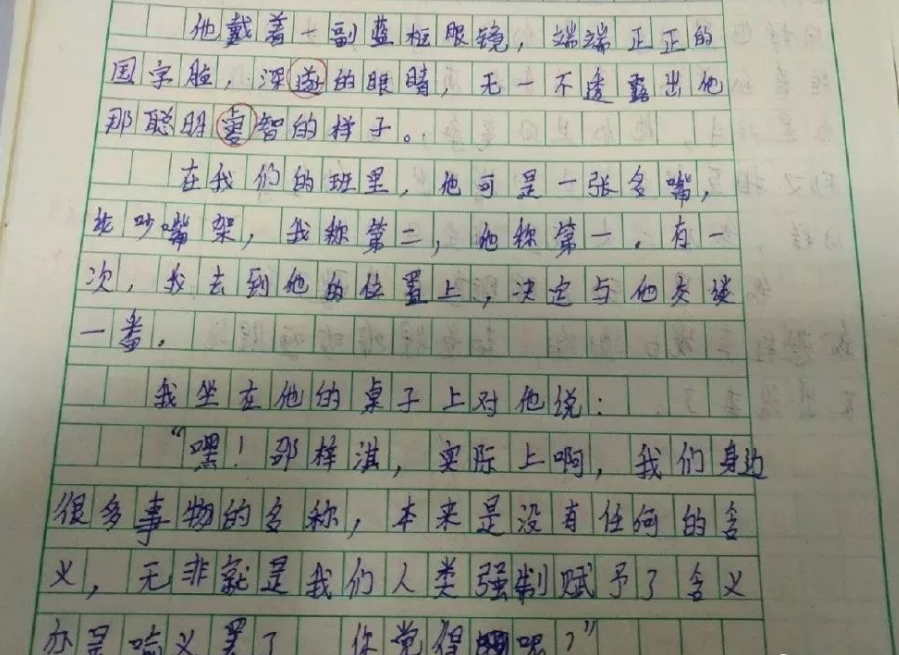 他戴着一副蓝框眼镜，端端正正的
国字脸，深邃的眼睛，无一不透露出他
那聪明睿智的样子。
在我们的班里，他可是一张名嘴，
论吵嘴架，我称第二，他称第一。有一
次，我去到他的位置上，决定与他交谈
一番。
我坐在他的桌子上对他说：
“嘿！邵梓淇，实际上啊，我们身边
很多事物的名称，本来是没有任何的含
义，无非就是我们人类强制赋予了含义
亦是喻义罢了 你觉得呢？”